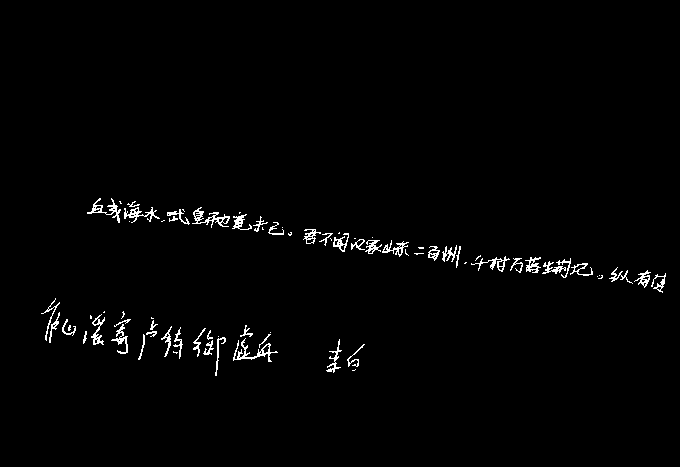 血成海水,武皇开边意未已。君不闻汉家山东二百州,千村万落生荆杞。纵有健
庐山谣寄卢侍御虚舟 李白